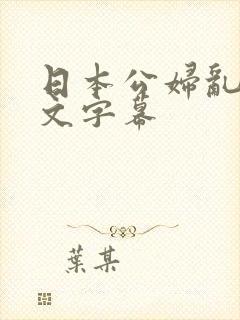 日本公婦亂
文字幕
葉某